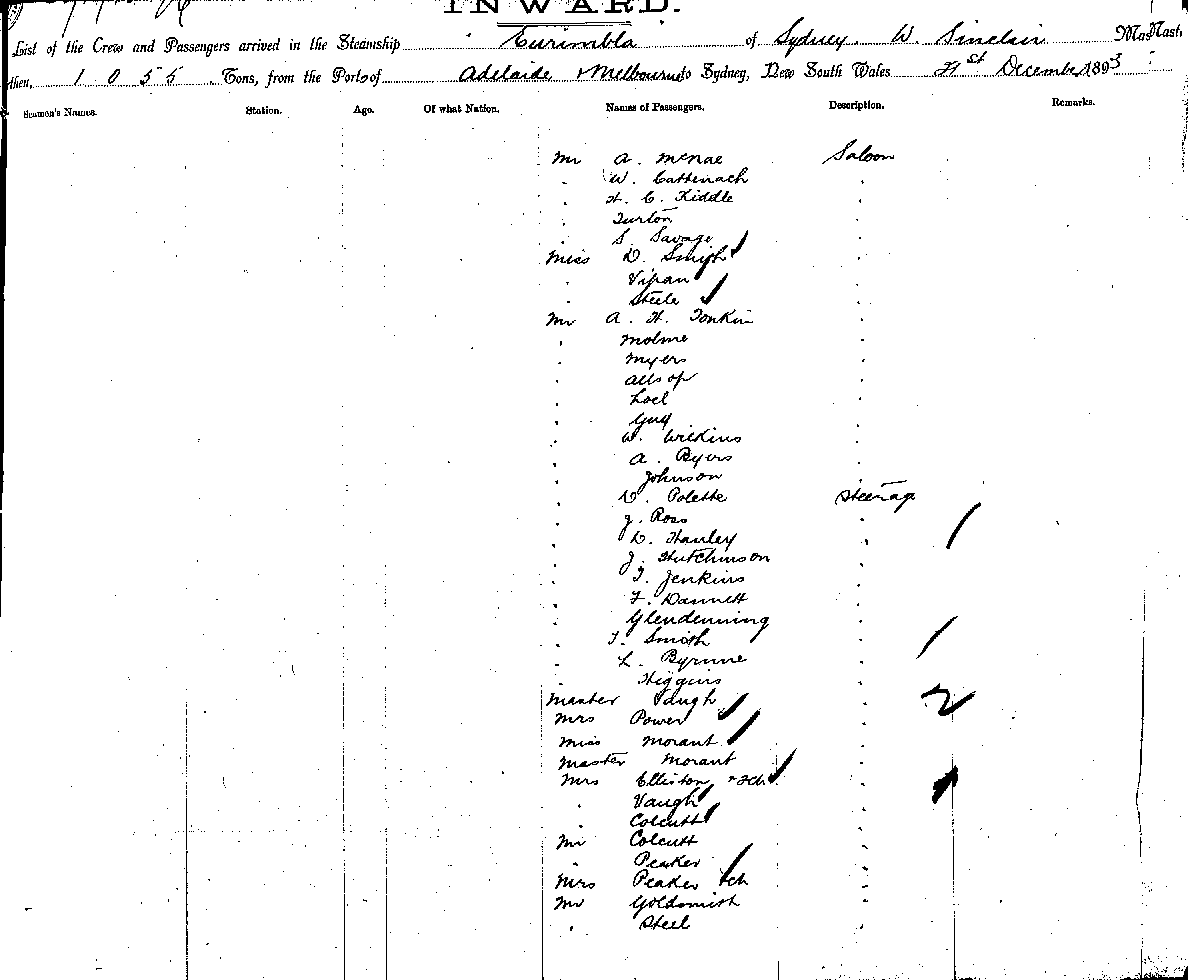 INWARD.
List of the Crew and Passengers arrived in the Steamship Eurimbla of Sydney. W. Sinclair Mas Mast
then, 1 0 5 5 Tons, from the Ports of Adelaide Melbourne to Sydney, New South Wales 21st December 1893
Seamen's Names. Station. Age. Of what Nation. Names of Passengers. Description. Remarks.
Mr A. McRae Saloon
" W. Cattenach "
" H. C. Kiddle "
" Turton "
" S. Savage "
Miss D. Smith "
" Vipan "
" Steele "
Mr A. H. Tonkin "
" Molme "
" Myers "
" Allsop "
" Loel "
" Guy "
" W. Wilkins "
" A. Byers "
" Johnson "
" D. Polette Steerage
" J. Ross "
" D. Hanley "
" J. Hutchinson "
" T. Jenkins "
" F. Dannett "
" Glendenning "
" T. Smith "
" L. Byrnne "
" Higgins "
Master Vaugh " 2
Mrs Power "
Miss Morant "
Master Morant "
Mrs Elliston + 2ch "
" Vaugh "
" Colcutt "
Mr Colcutt "
" Peaker "
Mrs Peaker + ch "
Mr Goldsmith "
" Steel "